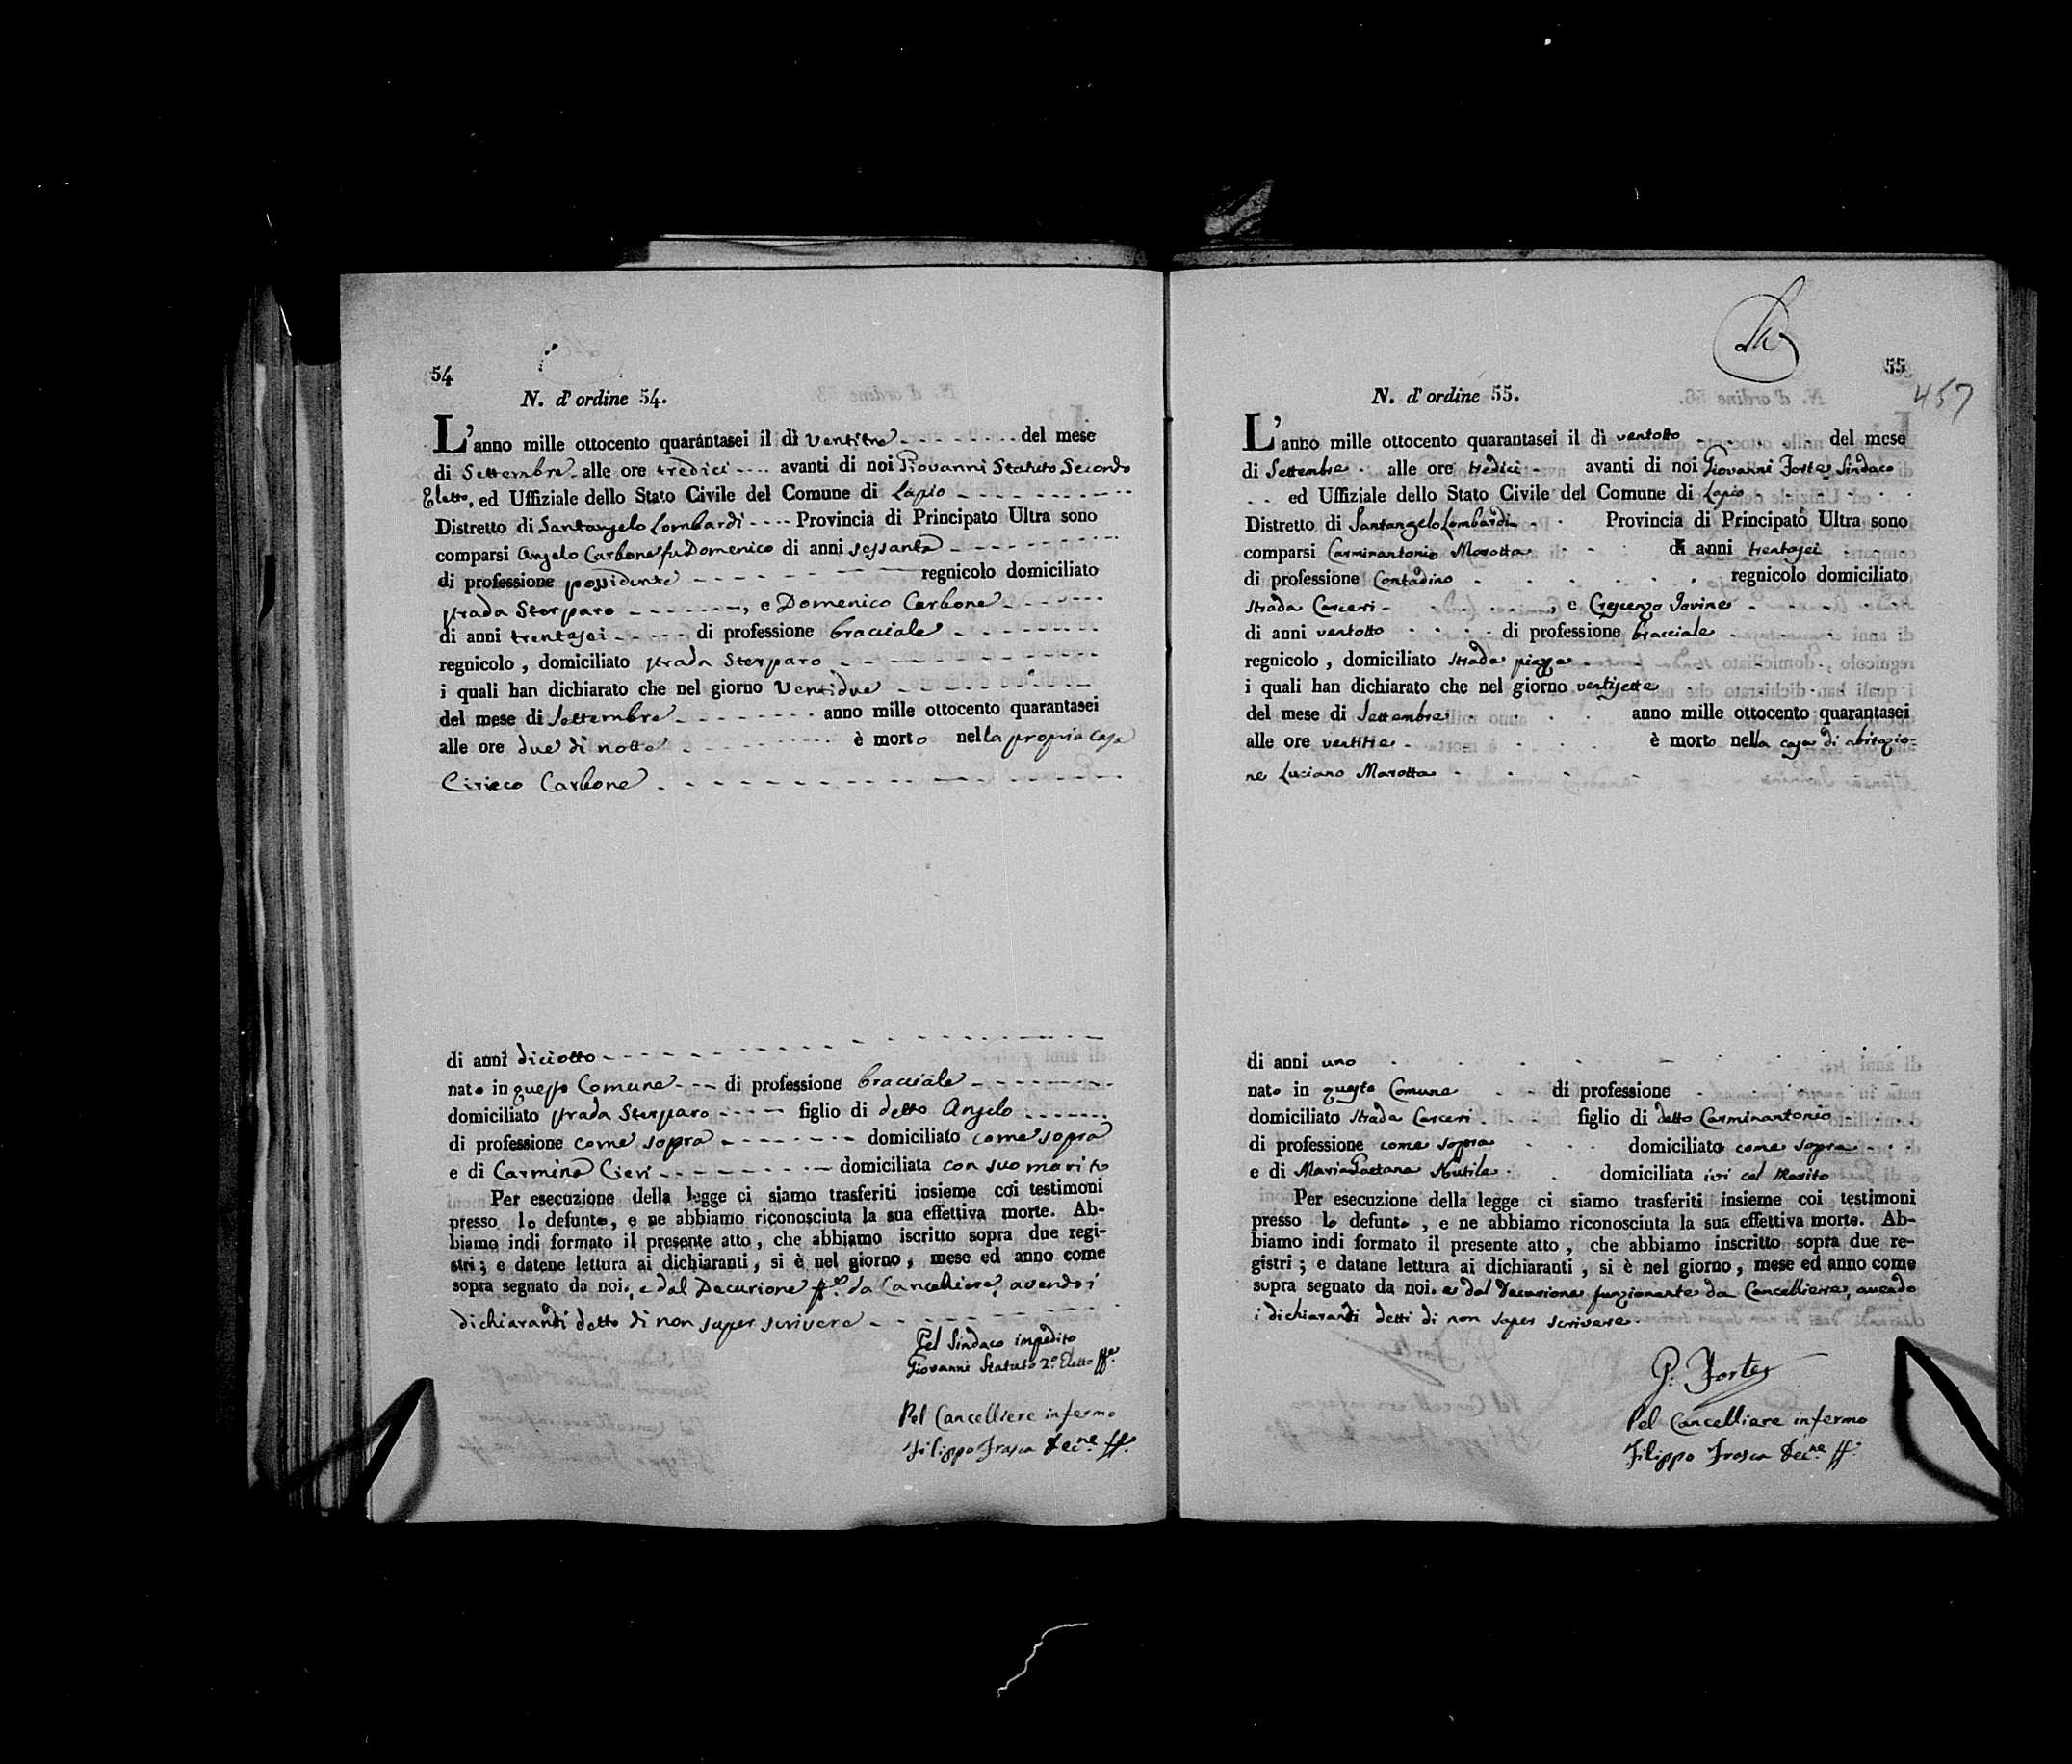 54
N. d'ordine 54.
L'anno mille ottocento quarantasei il dì ventitre del mese
di Settembre alle ore tredici avanti di noi Giovanni Statuto Secondo
Eletto, ed Uffiziale dello Stato Civile del Comune di Lapio
Distretto di Santangelo Lombardi Provincia di Principato Ultra sono
comparsi Angelo Carbone fu Domenico di anni sessanta
di professione possidente regnicolo domiciliato
strada Sterparo, e Domenico Carbone
di anni trentasei di professione bracciale
regnicolo, domiciliato strada Sterparo
i quali han dichiarato che nel giorno ventidue
del mese di Settembre anno mille ottocento quarantasei
alle ore due di notte è morto nella propria casa
Ciriaco Carbone
di anni diciotto
nato in questo Comune di professione bracciale
domiciliato strada Sterparo figlio di detto Angelo
di professione come sopra domiciliato come sopra
e di Carmina Cieri domiciliata con suo marito
Per esecuzione della legge ci siamo trasferiti insieme coi testimoni
presso lo defunto, e ne abbiamo riconosciuta la sua effettiva morte. Ab-
biamo indi formato il presente atto, che abbiamo iscritto sopra due regi-
stri; e datene lettura ai dichiaranti, si è nel giorno, mese ed anno come
sopra segnato da noi, e dal Decurione ff. da Cancelliere, avendo i
dichiaranti detto di non saper scrivere
Pel Sindaco impedito
Giovanni Statuto 2.º Eletto ff.
Pel Cancelliere infermo
Filippo Frasca Dec.ne ff.
55
457
N. d'ordine 55.
L'anno mille ottocento quarantasei il dì ventotto del mese
di Settembre alle ore tredici avanti di noi Giovanni Forte Sindaco
ed Uffiziale dello Stato Civile del Comune di Lapio
Distretto di Santangelo Lombardi Provincia di Principato Ultra sono
comparsi Carminantonio Marotta di anni trentasei
di professione Contadino regnicolo domiciliato
strada Carceri, e Crescenzo Iovine
di anni ventotto di professione bracciale
regnicolo, domiciliato strada piazza
i quali han dichiarato che nel giorno ventisette
del mese di Settembre anno mille ottocento quarantasei
alle ore ventitre è morto nella casa di abitazio=
ne Luciano Marotta
di anni uno
nato in questo Comune di professione
domiciliato strada Carceri figlio di detto Carminantonio
di professione come sopra domiciliato come sopra
e di MariaGaetana domiciliata ivi col marito
Per esecuzione della legge ci siamo trasferiti insieme coi testimoni
presso lo defunto, e ne abbiamo riconosciuta la sua effettiva morte. Ab-
biamo indi formato il presente atto, che abbiamo inscritto sopra due re-
gistri; e datane lettura ai dichiaranti, si è nel giorno, mese ed anno come
supra segnato da noi. e dal Decurione funzionante da Cancelliere, avendo
i dichiaranti detti di non saper scrivere.
G. Forte
Pel Cancelliere infermo
Filippo Frasca Dec.ne ff.